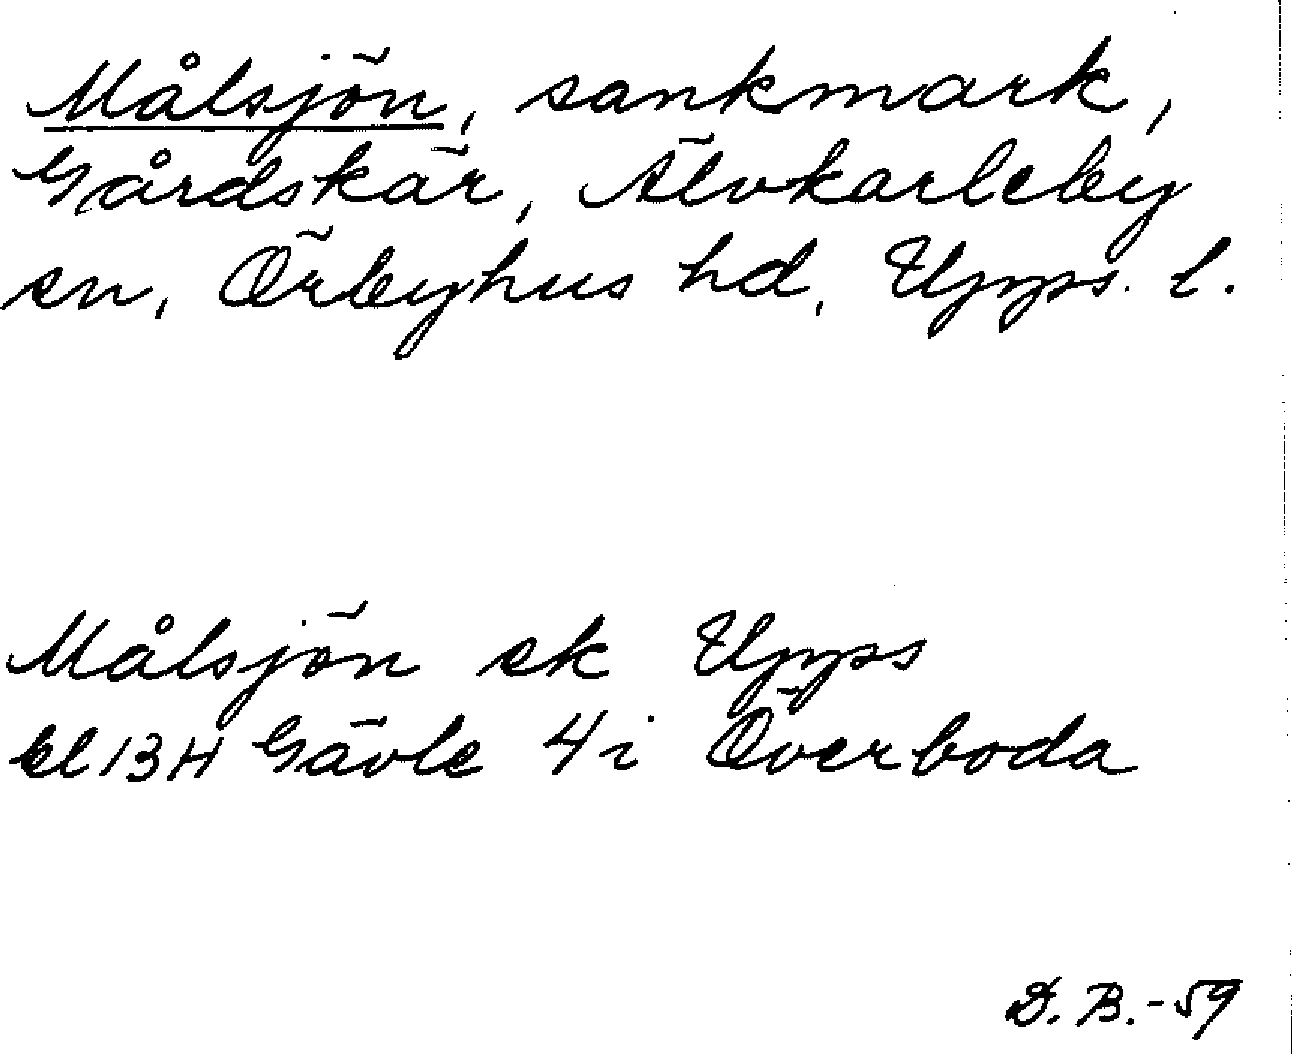 Målsjön, sankmark,
Gårdskär, Älvkarleby
sn, Örbyhus hd, Upps. l.
Målsjön sk Upps
bl 13H Gävle 4i Överboda
D.B.-59